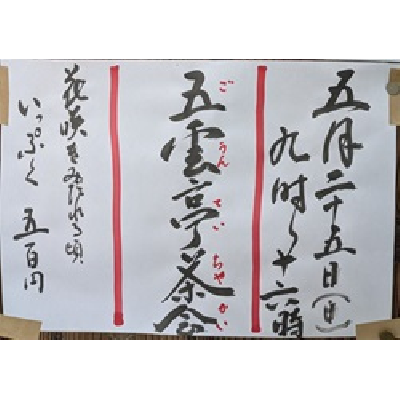 五月二十五日(日)
九時〜十六時
ごうんていちゃかい
五雲亭茶会
花咲きみだれる頃
いっぷく 五百円